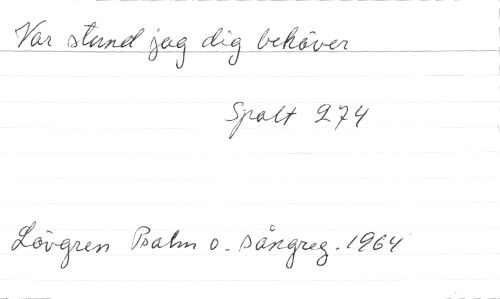 Var stund jag dig behöver
Spalt 274
Lövgren Psalm o. sångreg. 1964